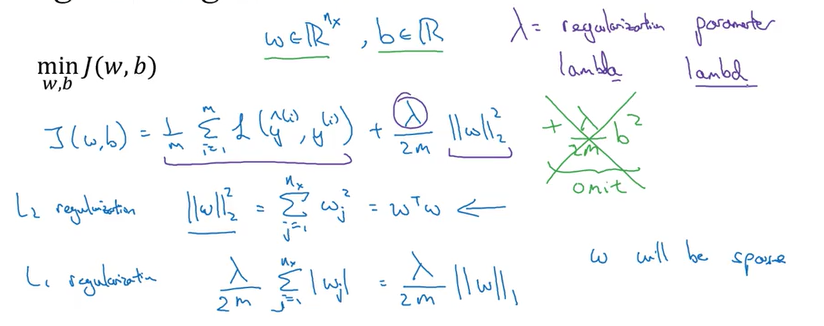 w ∈ ℝ^{n_x} , b ∈ ℝ
λ = regularization parameter
lambda lambd
min_{w,b} J(w, b)
J(w,b) = 1/m Σ_{i=1}^{m} L(ŷ^{(i)}, y^{(i)}) + λ/2m ||w||_2^2
+ λ/2m b^2
omit
L_2 regularization ||w||_2^2 = Σ_{j=1}^{n_x} w_j^2 = w^T w ←
L_1 regularization λ/2m Σ_{j=1}^{n_x} |w_j| = λ/2m ||w||_1
w will be sparse